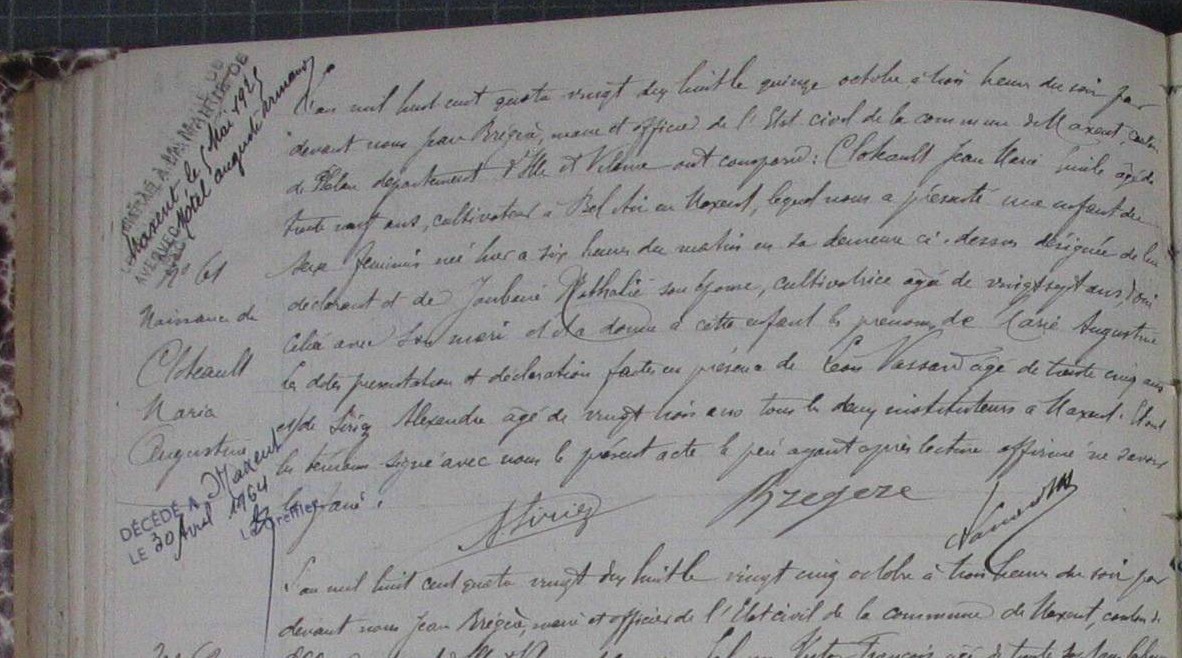 MARIÉ A LA MAIRIE DE
Maxent le 5 Mai 1925
AVEC Hôtel auguste armand
N° 61
Naissance de
Cloteault
Maria
Augustine
DÉCÉDÉ A Maxent
LE 30 Avril 1964
Le Greffier
L'an mil huit cent quatre vingt dix huit le quinze octobre à trois heures du soir par
devant nous Jean Brégère, maire et officier de l'Etat civil de la commune de Maxent, canton
de Plélan département d'Ille et Vilaine ont comparu : Cloteault Jean Marie âgé de
trente ans, cultivateur à Bel Air en Maxent, lequel nous a présenté une enfant du
sexe féminin née hier à six heures du matin en sa demeure ci-dessus désignée de lui
déclarant et de Nathalie son épouse, cultivatrice âgée de vingt sept ans, domi
ciliée avec son mari et a donné à cette enfant les prénoms de Maria Augustine
les dites présentation et déclaration faites en présence de Léon Vassard âgé de trente cinq ans
et de Siriez Alexandre âgé de vingt trois ans tous les deux instituteurs à Maxent. Et ont
les témoins signé avec nous le présent acte le père ayant après lecture affirmé ne savoir
le faire.
ASiriez Bregere Vassard
L'an mil huit cent quatre vingt dix huit le vingt cinq octobre à trois heures du soir par
devant nous Jean Brégère, maire et officier de l'Etat civil de la commune de Maxent, canton de
Victor François âgé de trente